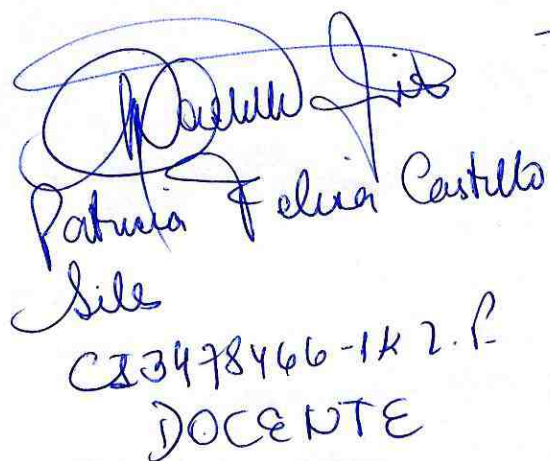 Patricia Felisa Castillo
Siles
CI 3478466-1K L.P.
DOCENTE